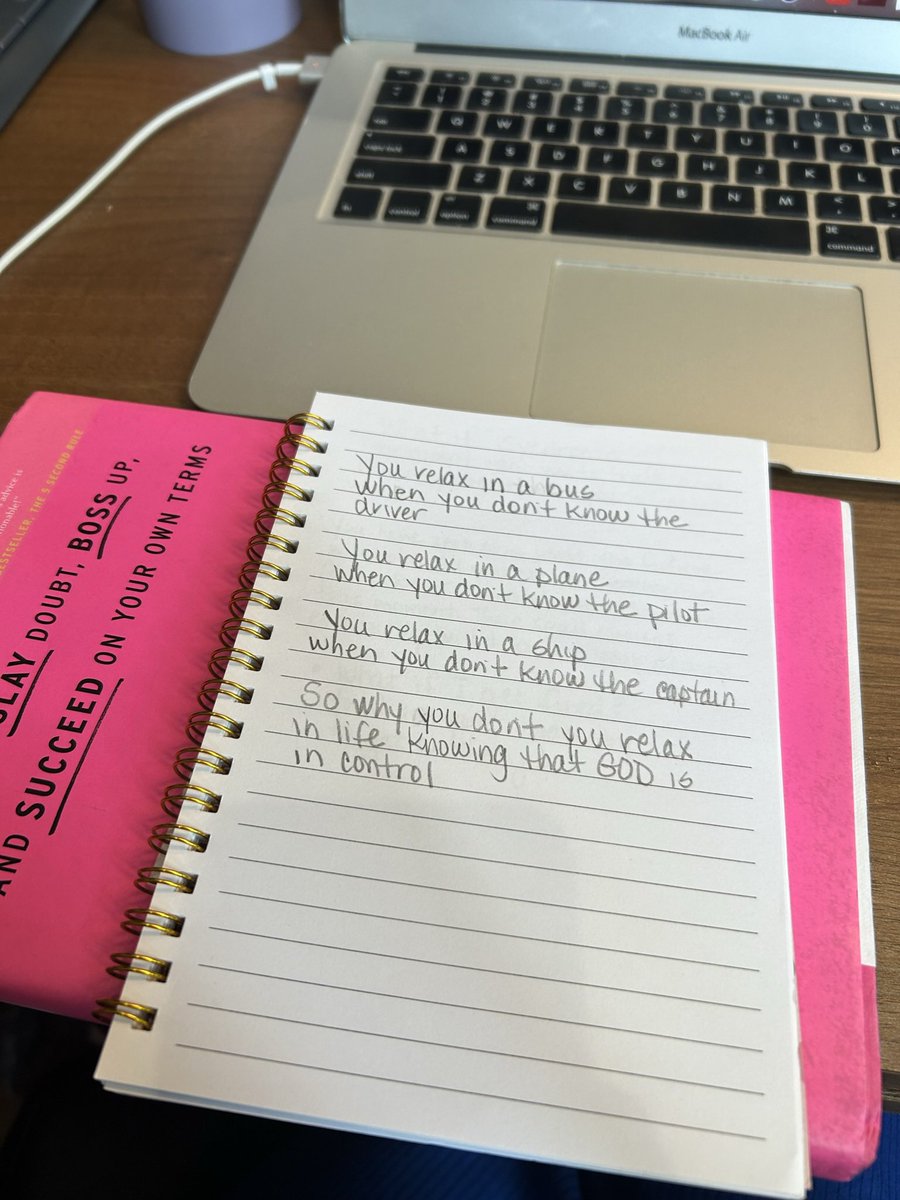 MacBook Air
Q W E R T Y U I O P
A S D F G H J K L
Z X C V B N M
fn control option command command
advice is
BESTSELLER, THE 5 SECOND RULE
SLAY DOUBT, BOSS UP,
AND SUCCEED ON YOUR OWN TERMS
You relax in a bus
when you don't know the
driver
You relax in a plane
when you don't know the pilot
You relax in a ship
when you don't know the captain
So why you dont you relax
in life knowing that GOD is
in control